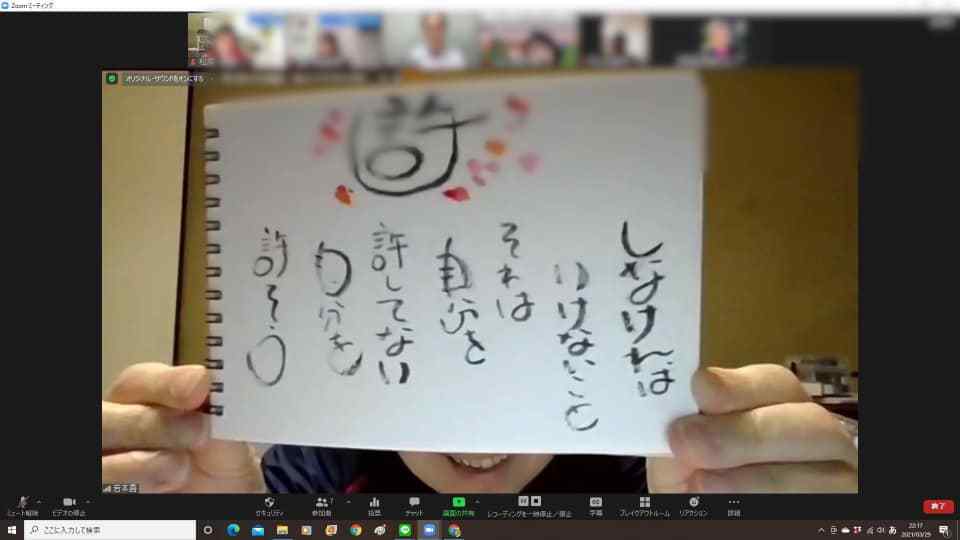 Zoom ミーティング
オリジナル サウンドをオンにする
許
しなければ
いけないこと
それは
自分を
許してない
自分を
許そう
ミュート解除
ビデオの停止
セキュリティ
参加者
7
投票
チャット
画面の共有
レコーディングを一時停止/停止
字幕
ブレイクアウトルーム
リアクション
詳細
終了
ここに入力して検索
あ
22:17
2021/03/29